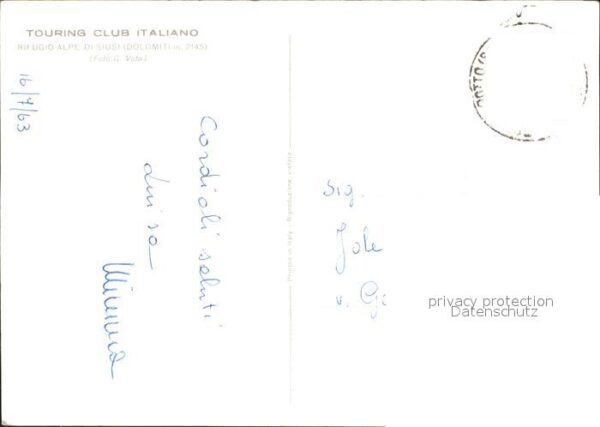 TOURING CLUB ITALIANO
RIFUGIO ALPE DI SIUSI (DOLOMITI m. 2145)
(Foto G. Vida)
16/7/63
Cordiali saluti
Luisa
Sig.
Jole
v.
Printed in Italy - Riproduzione vietata
privacy protection
Datenschutz